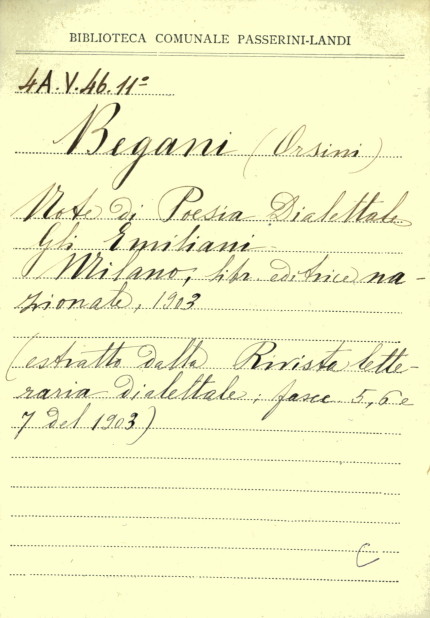 BIBLIOTECA COMUNALE PASSERINI-LANDI
4A.V.46.11º
Begani (Orsini)
Note di Poesia Dialettale
Gli Emiliani
Milano, libr. editrice na-
zionale, 1903
(estratto dalla Rivista lette-
raria dialettale; fasc. 5, 6 e
7 del 1903)
C